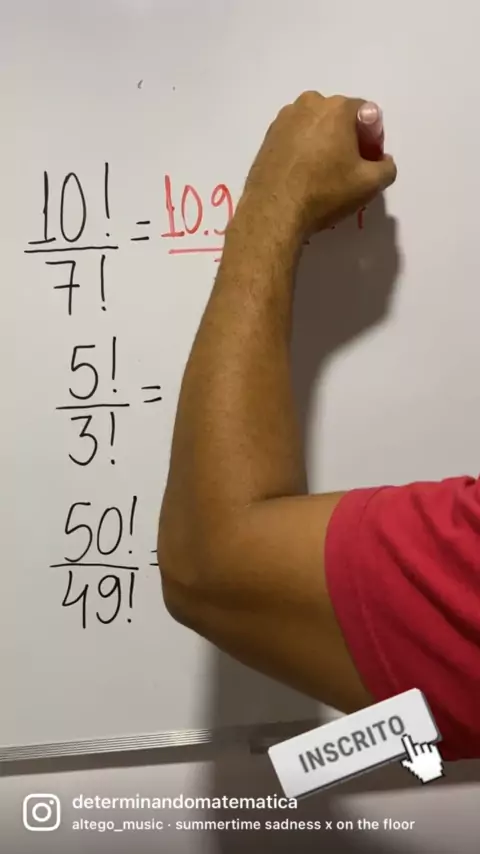 10!
7!
= 10.9
5!
3!
=
50!
49!
=
INSCRITO
determinandomatematica
altego_music · summertime sadness x on the floor